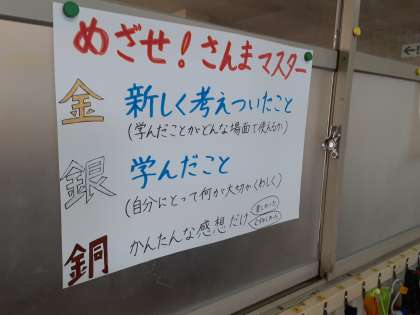 めざせ！さんまマスター
金 新しく考えついたこと
(学んだことがどんな場面で使えるか)
銀 学んだこと
(自分にとって何が大切かくわしく)
銅 かんたんな感想だけ